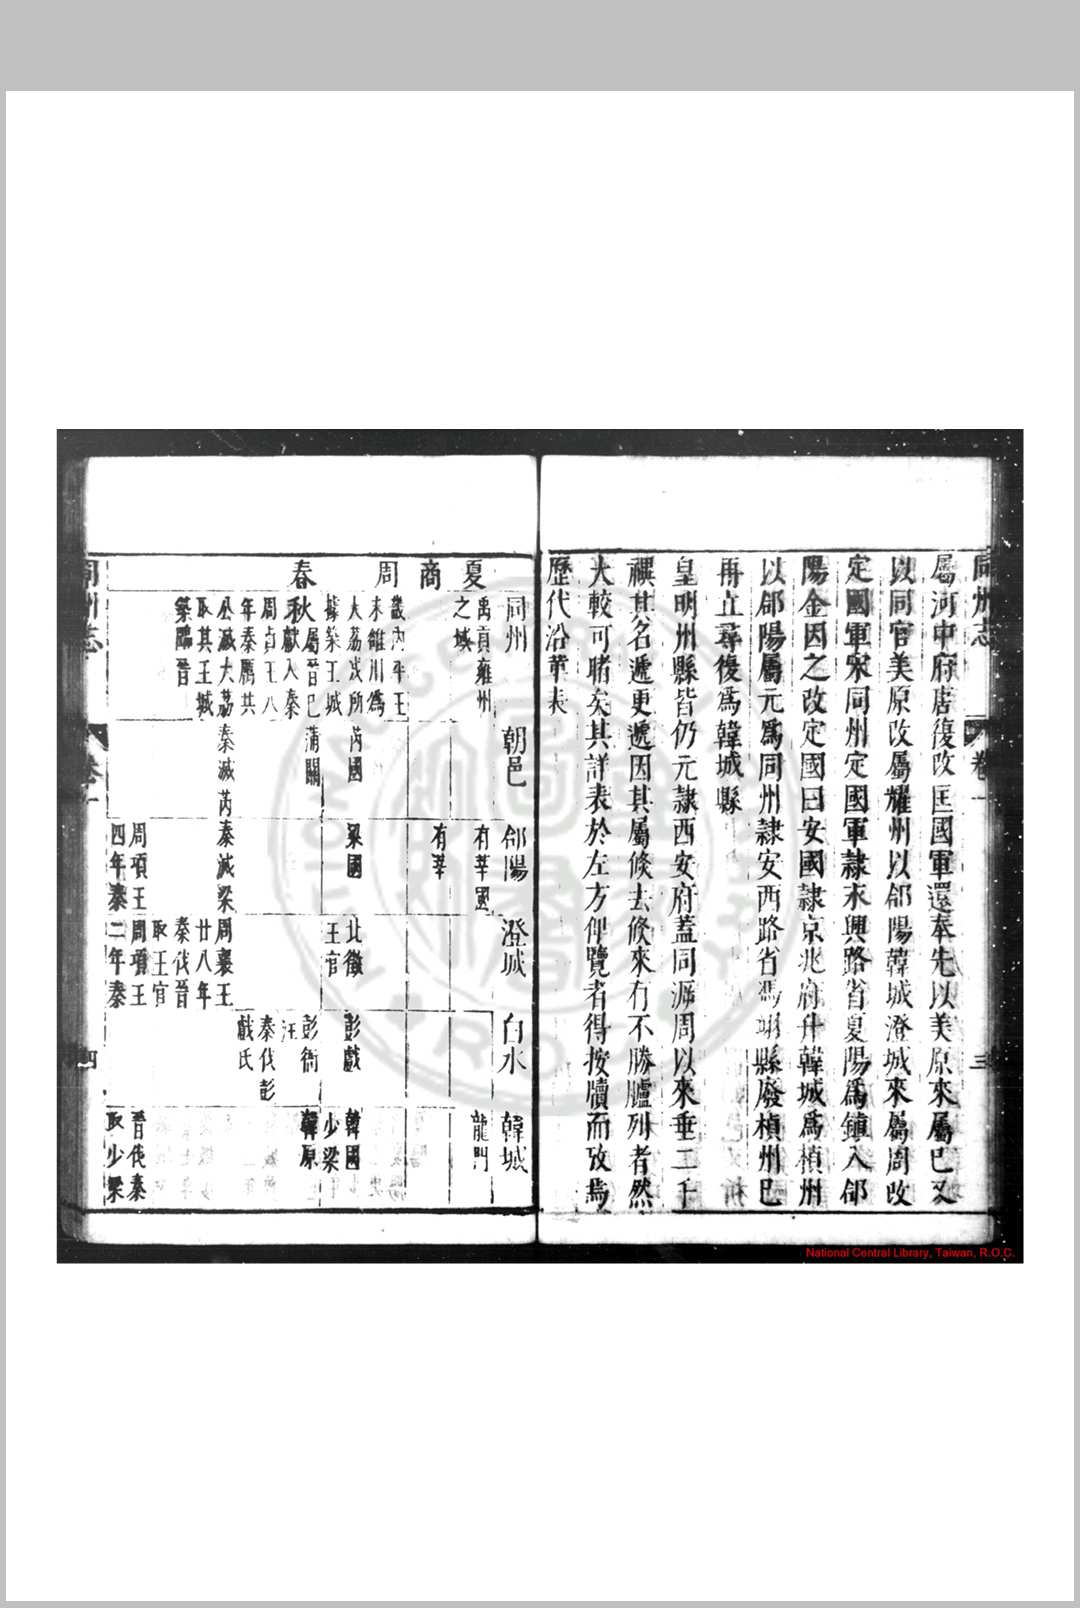 同州志
卷一
三
屬河中府唐復改匡國軍還奉先以美原來屬已又
以同官美原改屬耀州以郃陽韓城澄城來屬周改
定國軍宋同州定國軍隸永興路省夏陽爲鎮入郃
陽金因之改定國曰安國隸京兆府升韓城爲楨州
以郃陽屬元爲同州隸安西路省馮翊縣廢楨州已
再立尋復爲韓城縣
皇明州縣皆仍元隸西安府蓋同源周以來垂二千
禩其名遞更遞因其屬倏去倏來有不勝臚列者然
大較可睹矣其詳表於左方俾覽者得按牘而攷焉
歷代沿革表
同州
朝邑
郃陽
澄城
白水
韓城
夏
禹貢雍州
之域
有莘國
龍門
商
有莘
周
畿內平王
末雒川爲
大荔戎所
據築王城
芮國
梁國
北徵
王官
彭戲
韓國
少梁
春秋
屬晉已
獻入秦
周貞王八
年秦厲共
公滅大荔
取其王城
築臨晉
蒲關
秦滅芮
秦滅梁
周頃王
四年秦
周襄王
廿八年
秦伐晉
取王官
周頃王
二年秦
彭衙
汪
秦伐彭
戲氏
韓原
晉伐秦
取少梁
同州志
卷一
四
National Central Library, Taiwan, R.O.C.